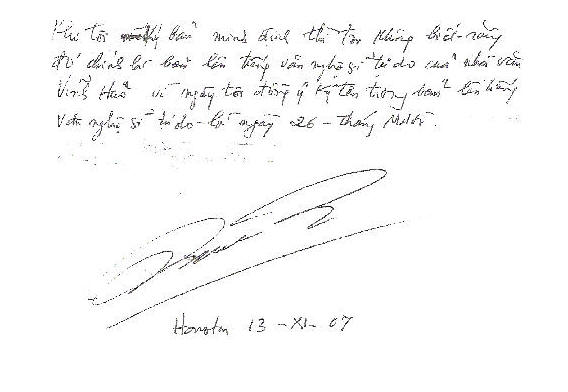 Khi tôi ký bản minh định thì tôi không biết rằng
đó chính là bản lên tiếng văn nghệ sĩ tự do của nhà văn
Vĩnh Hảo vì ngày tôi đồng ý ký tên trong bản lên tiếng
Văn nghệ sĩ tự do là ngày 26 - Tháng Mười.
Houston 13 - XI - 07